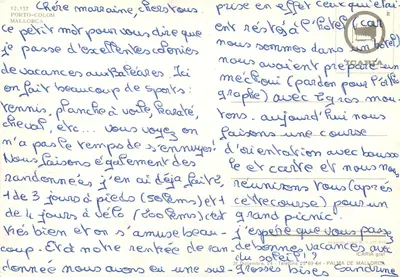 12-137
PORTO-COLOM
MALLORCA
Chère marraine, chers tous
ce petit mot pour vous dire que
je passe d'excellentes colonies
de vacances aux Baléares. Ici
on fait beaucoup de sports :
tennis, planche à voile, karaté,
cheval, etc... vous voyez on
n'a pas le temps de s'ennuyer!
Nous faisons également des
randonnées j'en ai déjà faite,
1 de 3 jours à pieds (50 kms) et
de 4 jours à vélo (200 kms) c'est
très bien et on s'amuse beau-
coup. Et à notre rentrée de ran-
donnée nous avons eu une sur-
prise en effet ceux qui étai-
ent restés à l'hôtel (car
nous sommes dans un hôtel)
nous avaient préparé un
méchoui (pardon pour l'otho
graphe) avec 2 gros mou-
tons. aujourd'hui nous
faisons une course
d'orientation avec bousso
le et carte et nous nous
réunirons tous (après
cette course) pour un
grand picnic.
j'espère que vous passez
de bonnes vacances aux
du soleil!?
grosses bises sandrine
PALMA DE MALLORCA